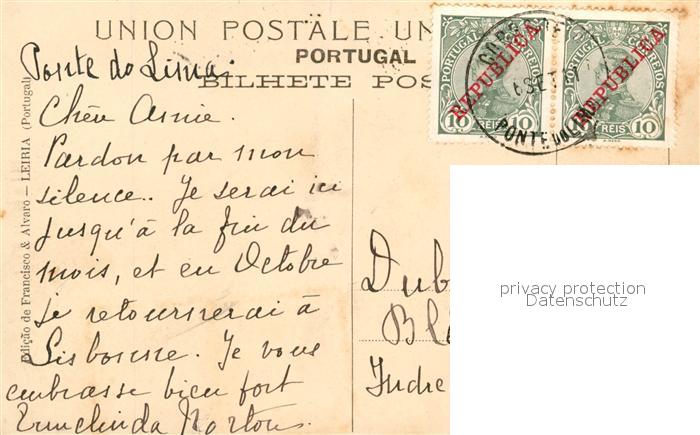 UNION POSTALE UN
PORTUGAL
BILHETE POS
Edição de Francisco & Alvaro — LEIRIA (Portugal)
Ponte do Lima
Chère Annie.
Pardon par mon
silence.. Je serai ici
jusqu'à la fin du
mois, et en Octobre
je retournerai à
Lisbonne. Je vous
embrasse bien fort
Ermelinda Norton.
PORTUGAL CORREIOS
REPUBLICA
10 REIS 10
PORTUGAL CORREIOS
REPUBLICA
REIS 10
6 SET
PONTE DO LIMA
Dub
Bl
Indre
privacy protection
Datenschutz